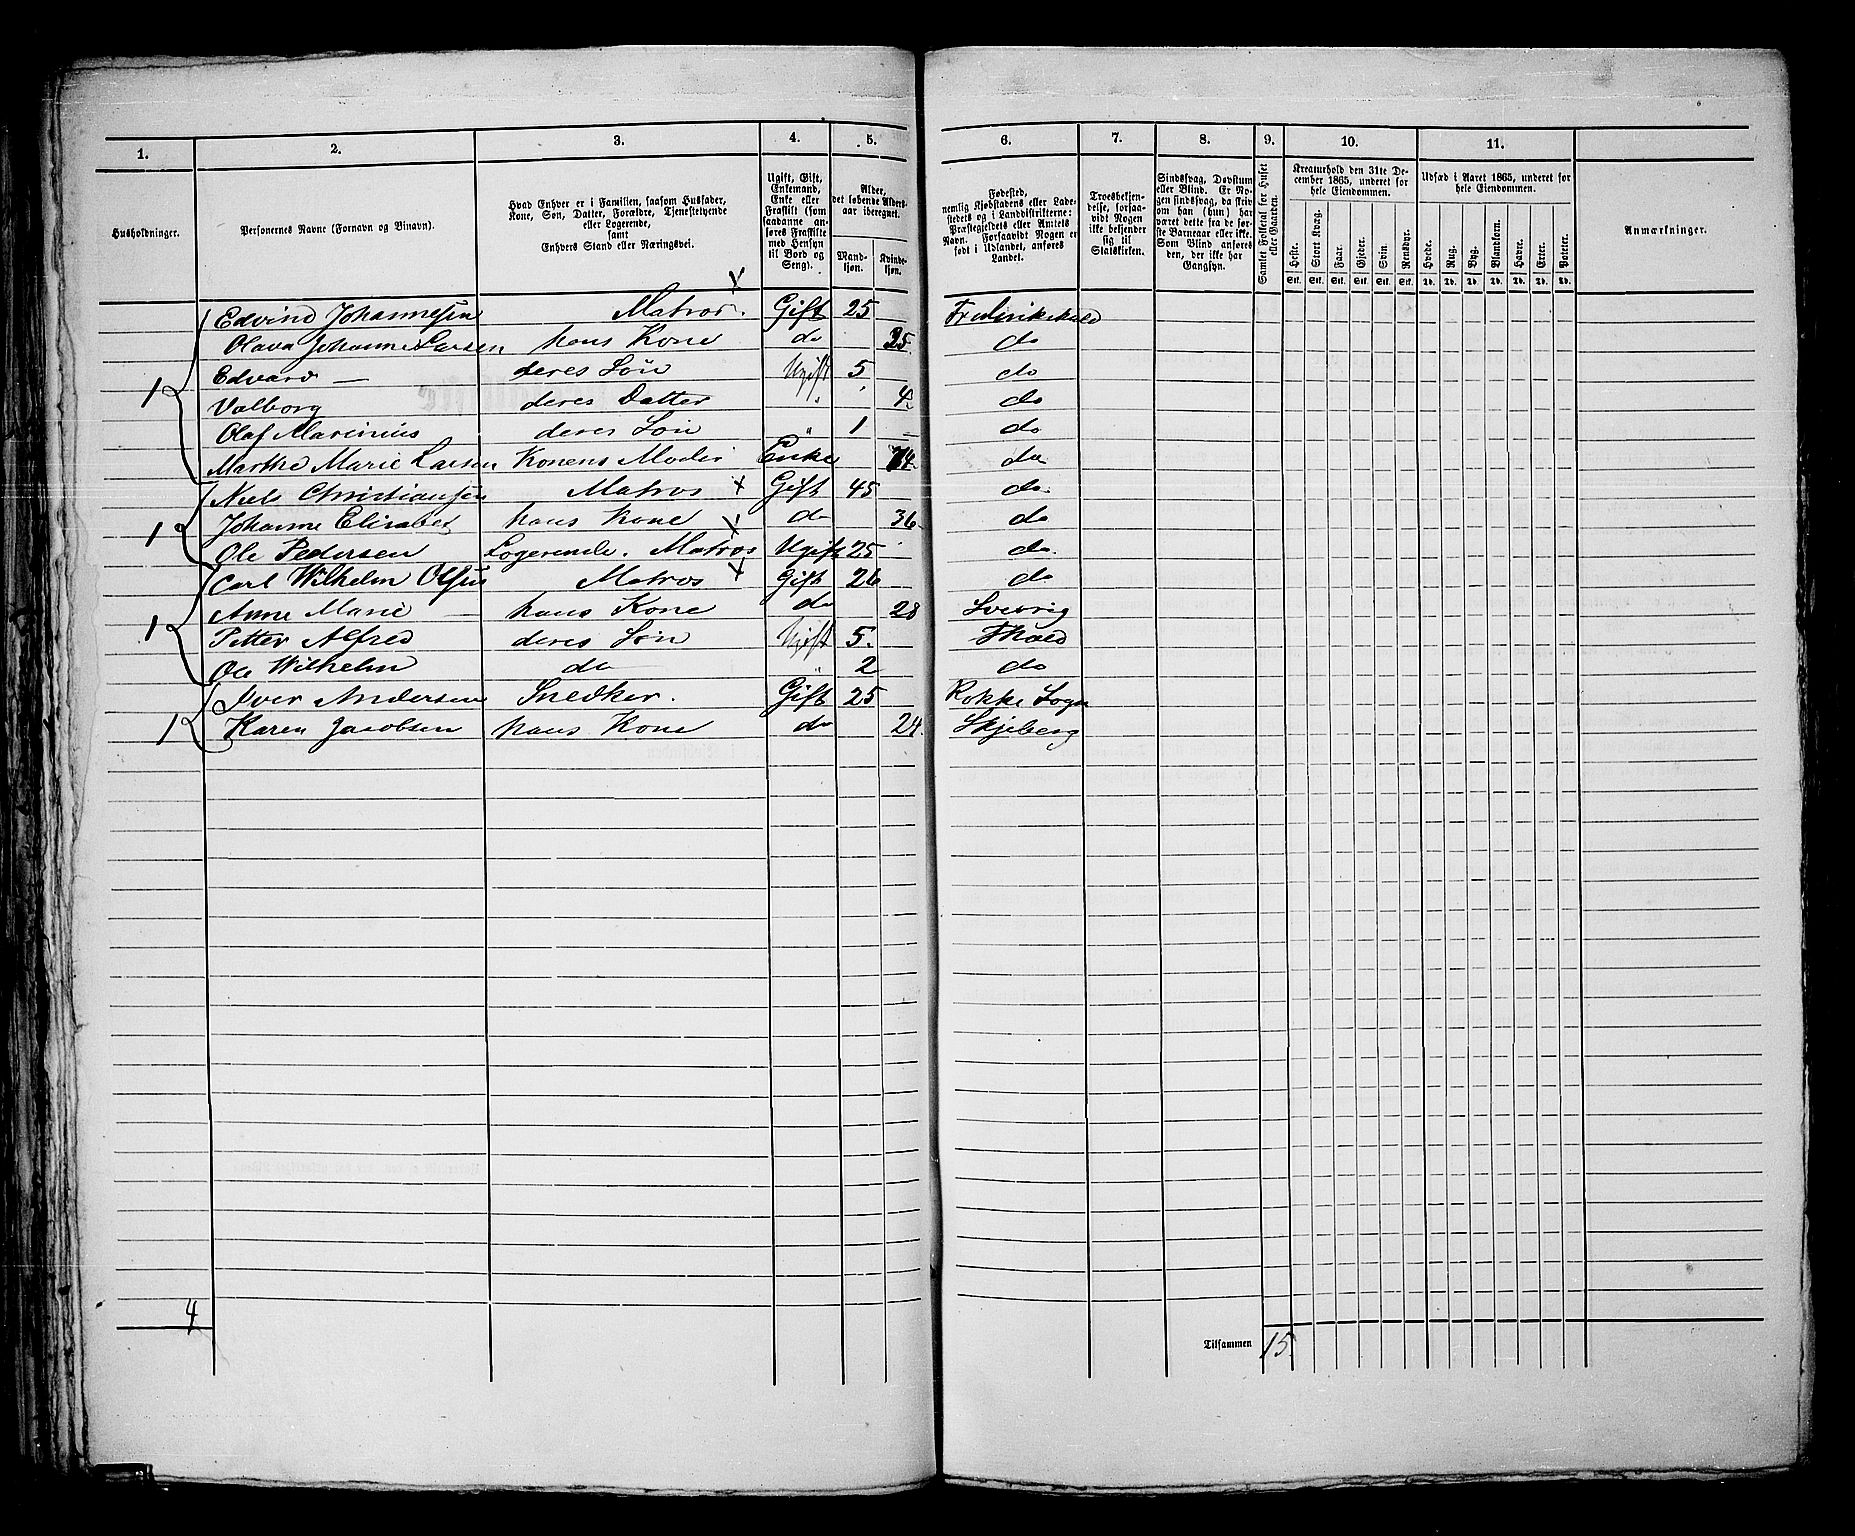 1. 2. 3. 4. 5. 6. 7. 8. 9. 10. 11.
Husholdninger.
Personernes Navne (Fornavn og Binavn).
Hvad Enhver er i Familien, saasom Husfader,
Kone, Søn, Datter, Forældre, Tjenestetyende
eller Logerende,
samt
Enhvers Stand eller Næringsvei.
Ugift, Gift,
Enkemand,
Enke eller
Fraskilt (som
saadanne an-
føres Fraskilte
med Hensyn
til Bord og
Seng).
Alder,
det løbende Alders-
aar iberegnet.
Mand-
kjøn.
Kvinde-
kjøn.
Fødested,
nemlig Kjøbstadens eller Lade-
stedets og i Landdistrikterne:
Præstegjeldets eller Amtets
Navn. Forsaavidt Nogen er
født i Udlandet, anføres
Landet.
Troesbekjen-
delse, forsaa-
vidt Nogen
ikke bekjender
sig til
Statskirken.
Sindssvag, Døvstum
eller Blind. Er No-
gen sindssvag, da skriv
om han (hun) har
været dette fra de før-
ste Barneaar eller ikke.
Som Blind anføres
den, der ikke har
Gangsyn.
Samlet Folketal for Huset
eller Gaarden.
Kreaturhold den 31te De-
cember 1865, underet for
hele Eiendommen.
Heste. Stort Kvæg. Faar. Gjeder. Svin. Rensdyr.
Stk. Stk. Stk. Stk. Stk. Stk.
Udsæd i Aaret 1865, underet for
hele Eiendommen.
Hvede. Rug. Byg. Blandkorn. Havre. Erter. Poteter.
Td. Td. Td. Td. Td. Td. Td.
Anmærkninger.
Edvind Johannesen Matros. Gift 25 Fredrikshald
Olava Johanne Larsen hans Kone do 25 do
1 Edvard — deres Søn Ugift 5 do
Valborg deres Datter " 4 do
Olaf Marinius deres Søn " 1 do
Marthe Marie Larsen Konens Moder Enke 74 do
Niels Christiansen Matros x Gift 45 do
1 Johanne Elisabet hans Kone do 36 do
Ole Pedersen Logerende. Matros x Ugift 25 do
Carl Wilhelm Olsen Matros x Gift 26 do
1 Anne Marie — hans Kone do 28 Sverrig
Petter Alfred deres Søn Ugift 5. Fhald
Ole Wilhelm do " 2 do
Iver Andersen Snedker. Gift 25 Rokke Sogn
1 Karen Jacobsen hans Kone do 24. Skjeberg
4
Tilsammen 15.